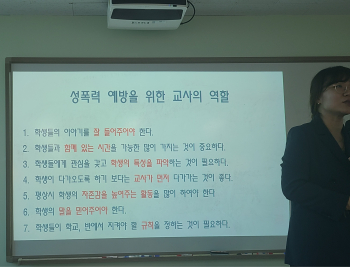 성폭력 예방을 위한 교사의 역할
1. 학생들의 이야기를 잘 들어주어야 한다.
2. 학생들과 함께 있는 시간을 가능한 많이 가지는 것이 중요하다.
3. 학생들에게 관심을 갖고 학생의 특성을 파악하는 것이 필요하다.
4. 학생이 다가오도록 하기 보다는 교사가 먼저 다가가는 것이 좋다.
5. 평상시 학생의 자존감을 높여주는 활동을 많이 하여야 한다
6. 학생의 말을 믿어주어야 한다.
7. 학생들이 학교, 반에서 지켜야 할 규칙을 정하는 것이 필요하다.